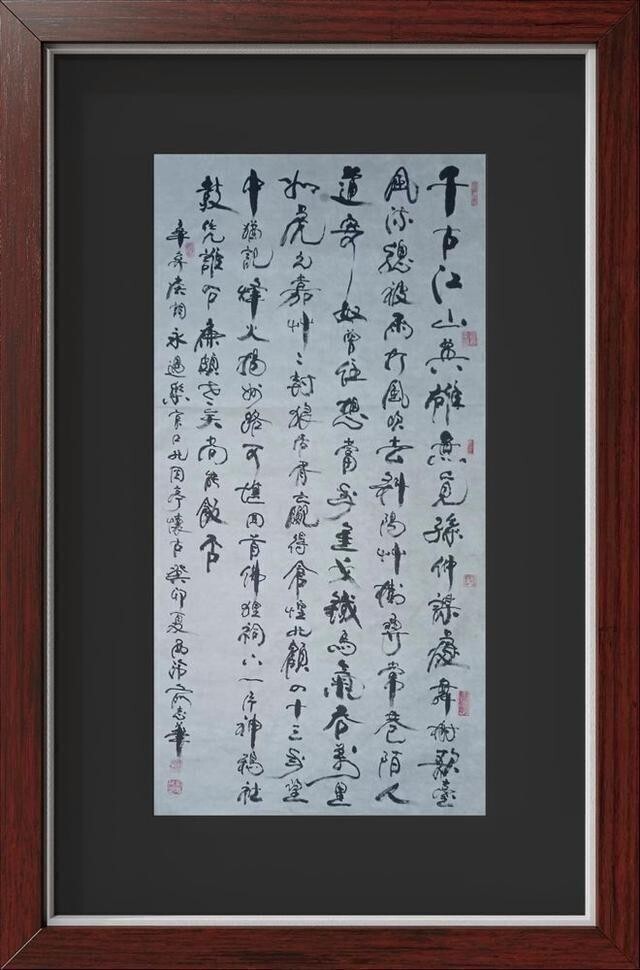 千古江山英雄無覓孫仲謀處舞榭歌臺
風流總被雨打風吹去斜陽艸樹尋常巷陌人
道寄奴曾住想當年金戈鐵馬氣吞萬里
如虎元嘉艸〻封狼居胥贏得倉惶北顧四十三年望
中猶記烽火揚州路可堪回首佛狸祠下一片神鴉社
鼓凭誰問廉頗老矣尚能飯否
辛弃疾詞永遇樂京口北固亭懷古癸卯夏俞志華